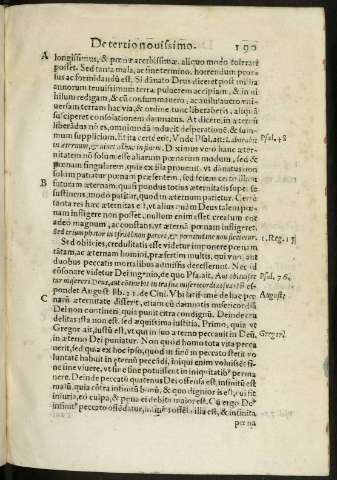 De tertio nouissimo. 190
A longissimus, & pœnæ acerbissimæ, aliquo modo tolerari
posset. Sed tanta mala, ac sine termino, horrendum prorsus
ius ac formidandũ est. Si dãnato Deus diceret post millia
annorum tenuissimum terræ puluerem accipiam, & in nihilum
redigam, & cũ consummauero, ac
terram hac via, & ordine, tunc liberaberis, aliquã
susciperet consolationem damnatus. At dicere, in æternũ
liberãdus nõ es, omnimodã inducit desperationẽ, & summum
supplicium. Et ita certè erit. Vnde Psal. ait: Laborabit Psal. 48
in æternum, & viuet adhuc in finem. Diximus verò hanc æternitatem
nõ solum esse aliarum pœnarum modum, sed &
pœnam singularem, quæ ex ista prouenit, vt dãnatus non
solùm patiatur pœnam præsentem, sed
B futuram æternam, quasi pondus totius æternitatis super se
sustinens, modò patiatur, quod in æternum patietur. Certè
tanta res hæc æternitas est, vt alias quàm Deus talem pœnam
infligere non posset, nullum enim esset creatum
adeò magnum, ac constans, vt æternã pœnam infligeret.
Sed triumphator in Israel non parcet, & pœnitudine non flectetur. 1. Reg. 15
Sed obijcies, credulitatis esse videtur imponere pœnam
tãtam, ac æternam homini, præsertim multis, qui vno, aut
duobus peccatis mortalibus admissis decesserunt. Nec id
cõsonare videtur Dei ingenio, de quo Psa. ait, Aut obliuiscetur Psal. 76.
misereri Deus, aut continebit in ira sua misericordias suas?
Respondet August. lib. 21. de Ciui. Vbi latissimè de hac pœnarũ August:
C æternitate disserit, etiam cũ damnatis misericordiã
Dei non contineri, quia punit citra condignũ. Deinde crudelitas
ista non est, sed æquissima iustitia. Primo, quia vt
Gregor. ait, iustũ est, vt qui in suo æterno peccauit in Deũ, Gregori.
in æterno Dei puniatur. Non quòd homo tota vita peccauerit,
sed quia ex hoc ipso, quòd in fine in peccato stetit voluntatẽ
habuit in æternũ peccãdi, iniqui enim voluissẽt sine
fine viuere, vt sine fine potuissent in iniquitatibꝰ permanere.
Deinde peccatũ quatenus Dei offensa est, infinitũ est
malũ, quia cõtra infinitũ bonũ, & quo dignior is est, cui fit
iniuria, eò culpa, & pœna ei debita maior est. Cũ ergo Deꝰ
infinitꝰ peccato offẽdatur, offẽsa illa est, & infinita
pœna